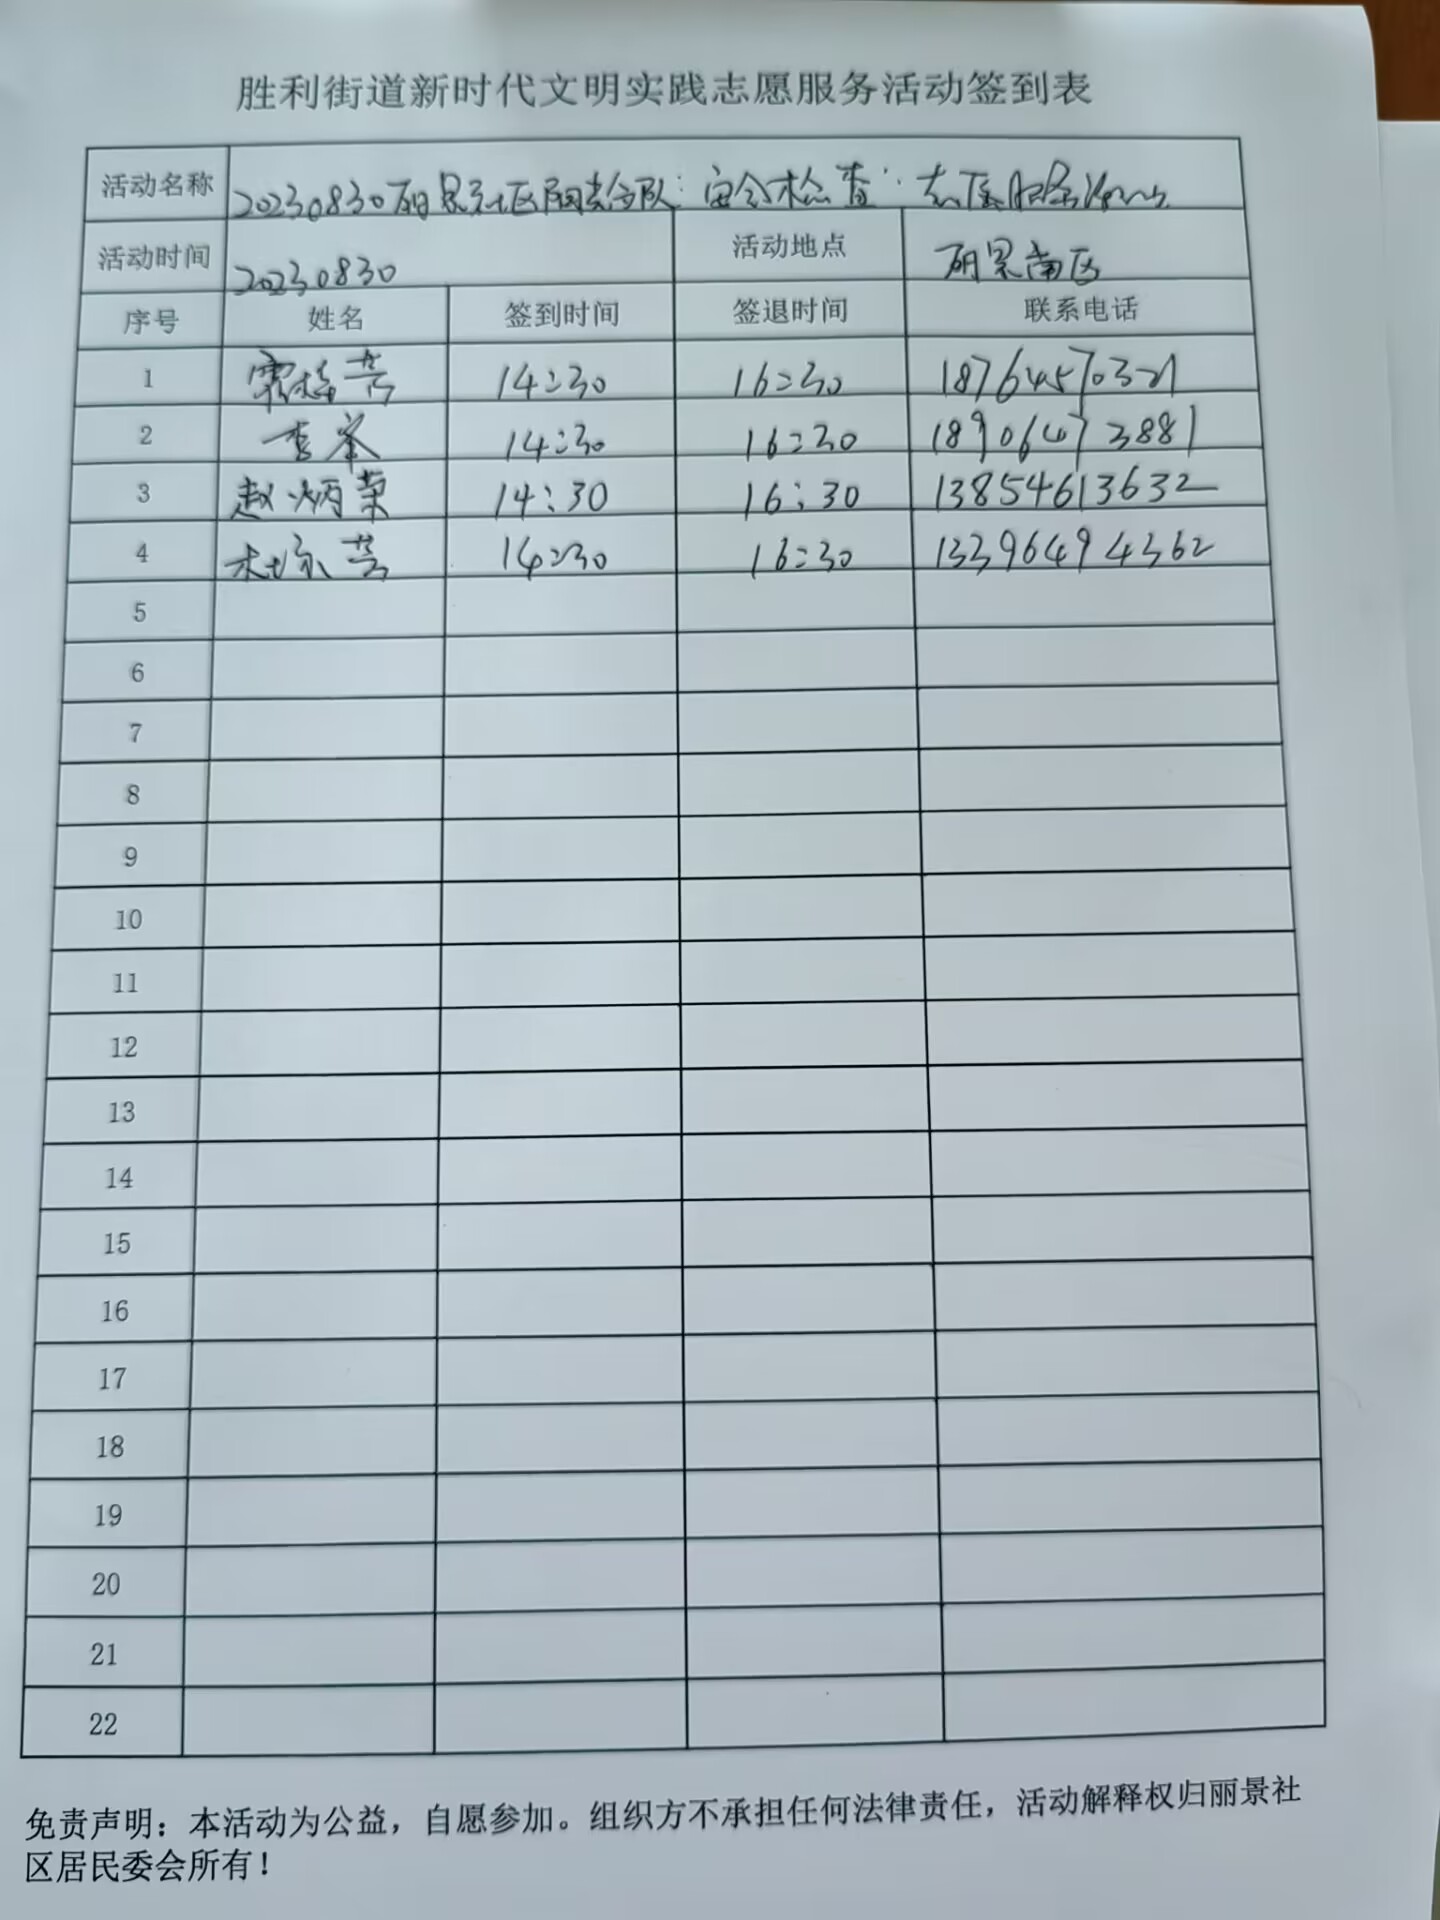 胜利街道新时代文明实践志愿服务活动签到表
活动名称 20230830丽景社区 队"安全检查"志愿服务活动
活动时间 20230830 活动地点 丽景南区
序号 姓名 签到时间 签退时间 联系电话
1 14:30 16:30 18764570321
2 李峯 14:30 16:30 18906473881
3 赵炳荣 14:30 16:30 13854613632
4 杜永芳 14:30 16:30 13396494362
5
6
7
8
9
10
11
12
13
14
15
16
17
18
19
20
21
22
免责声明：本活动为公益，自愿参加。组织方不承担任何法律责任，活动解释权归丽景社
区居民委会所有！